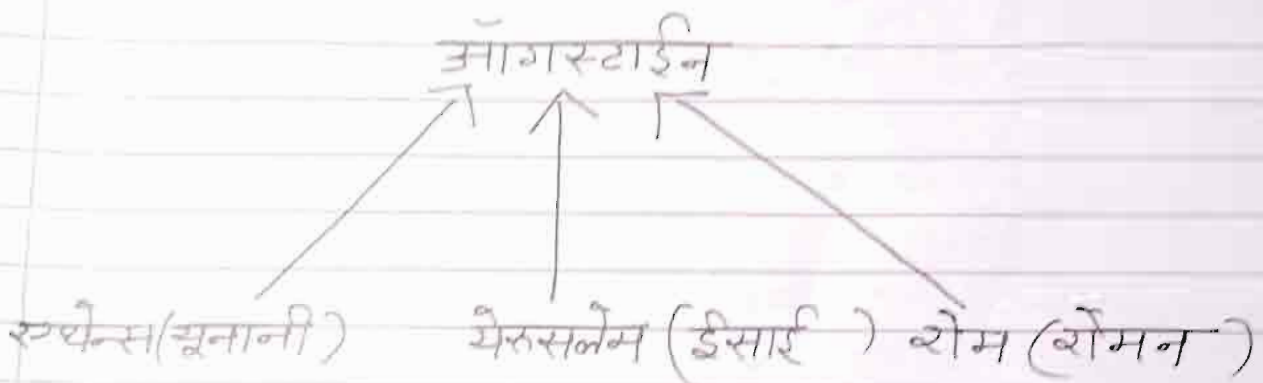 ऑगस्टाईन
एथेन्स (यूनानी) येरुसलेम (ईसाई) रोम (रोमन)